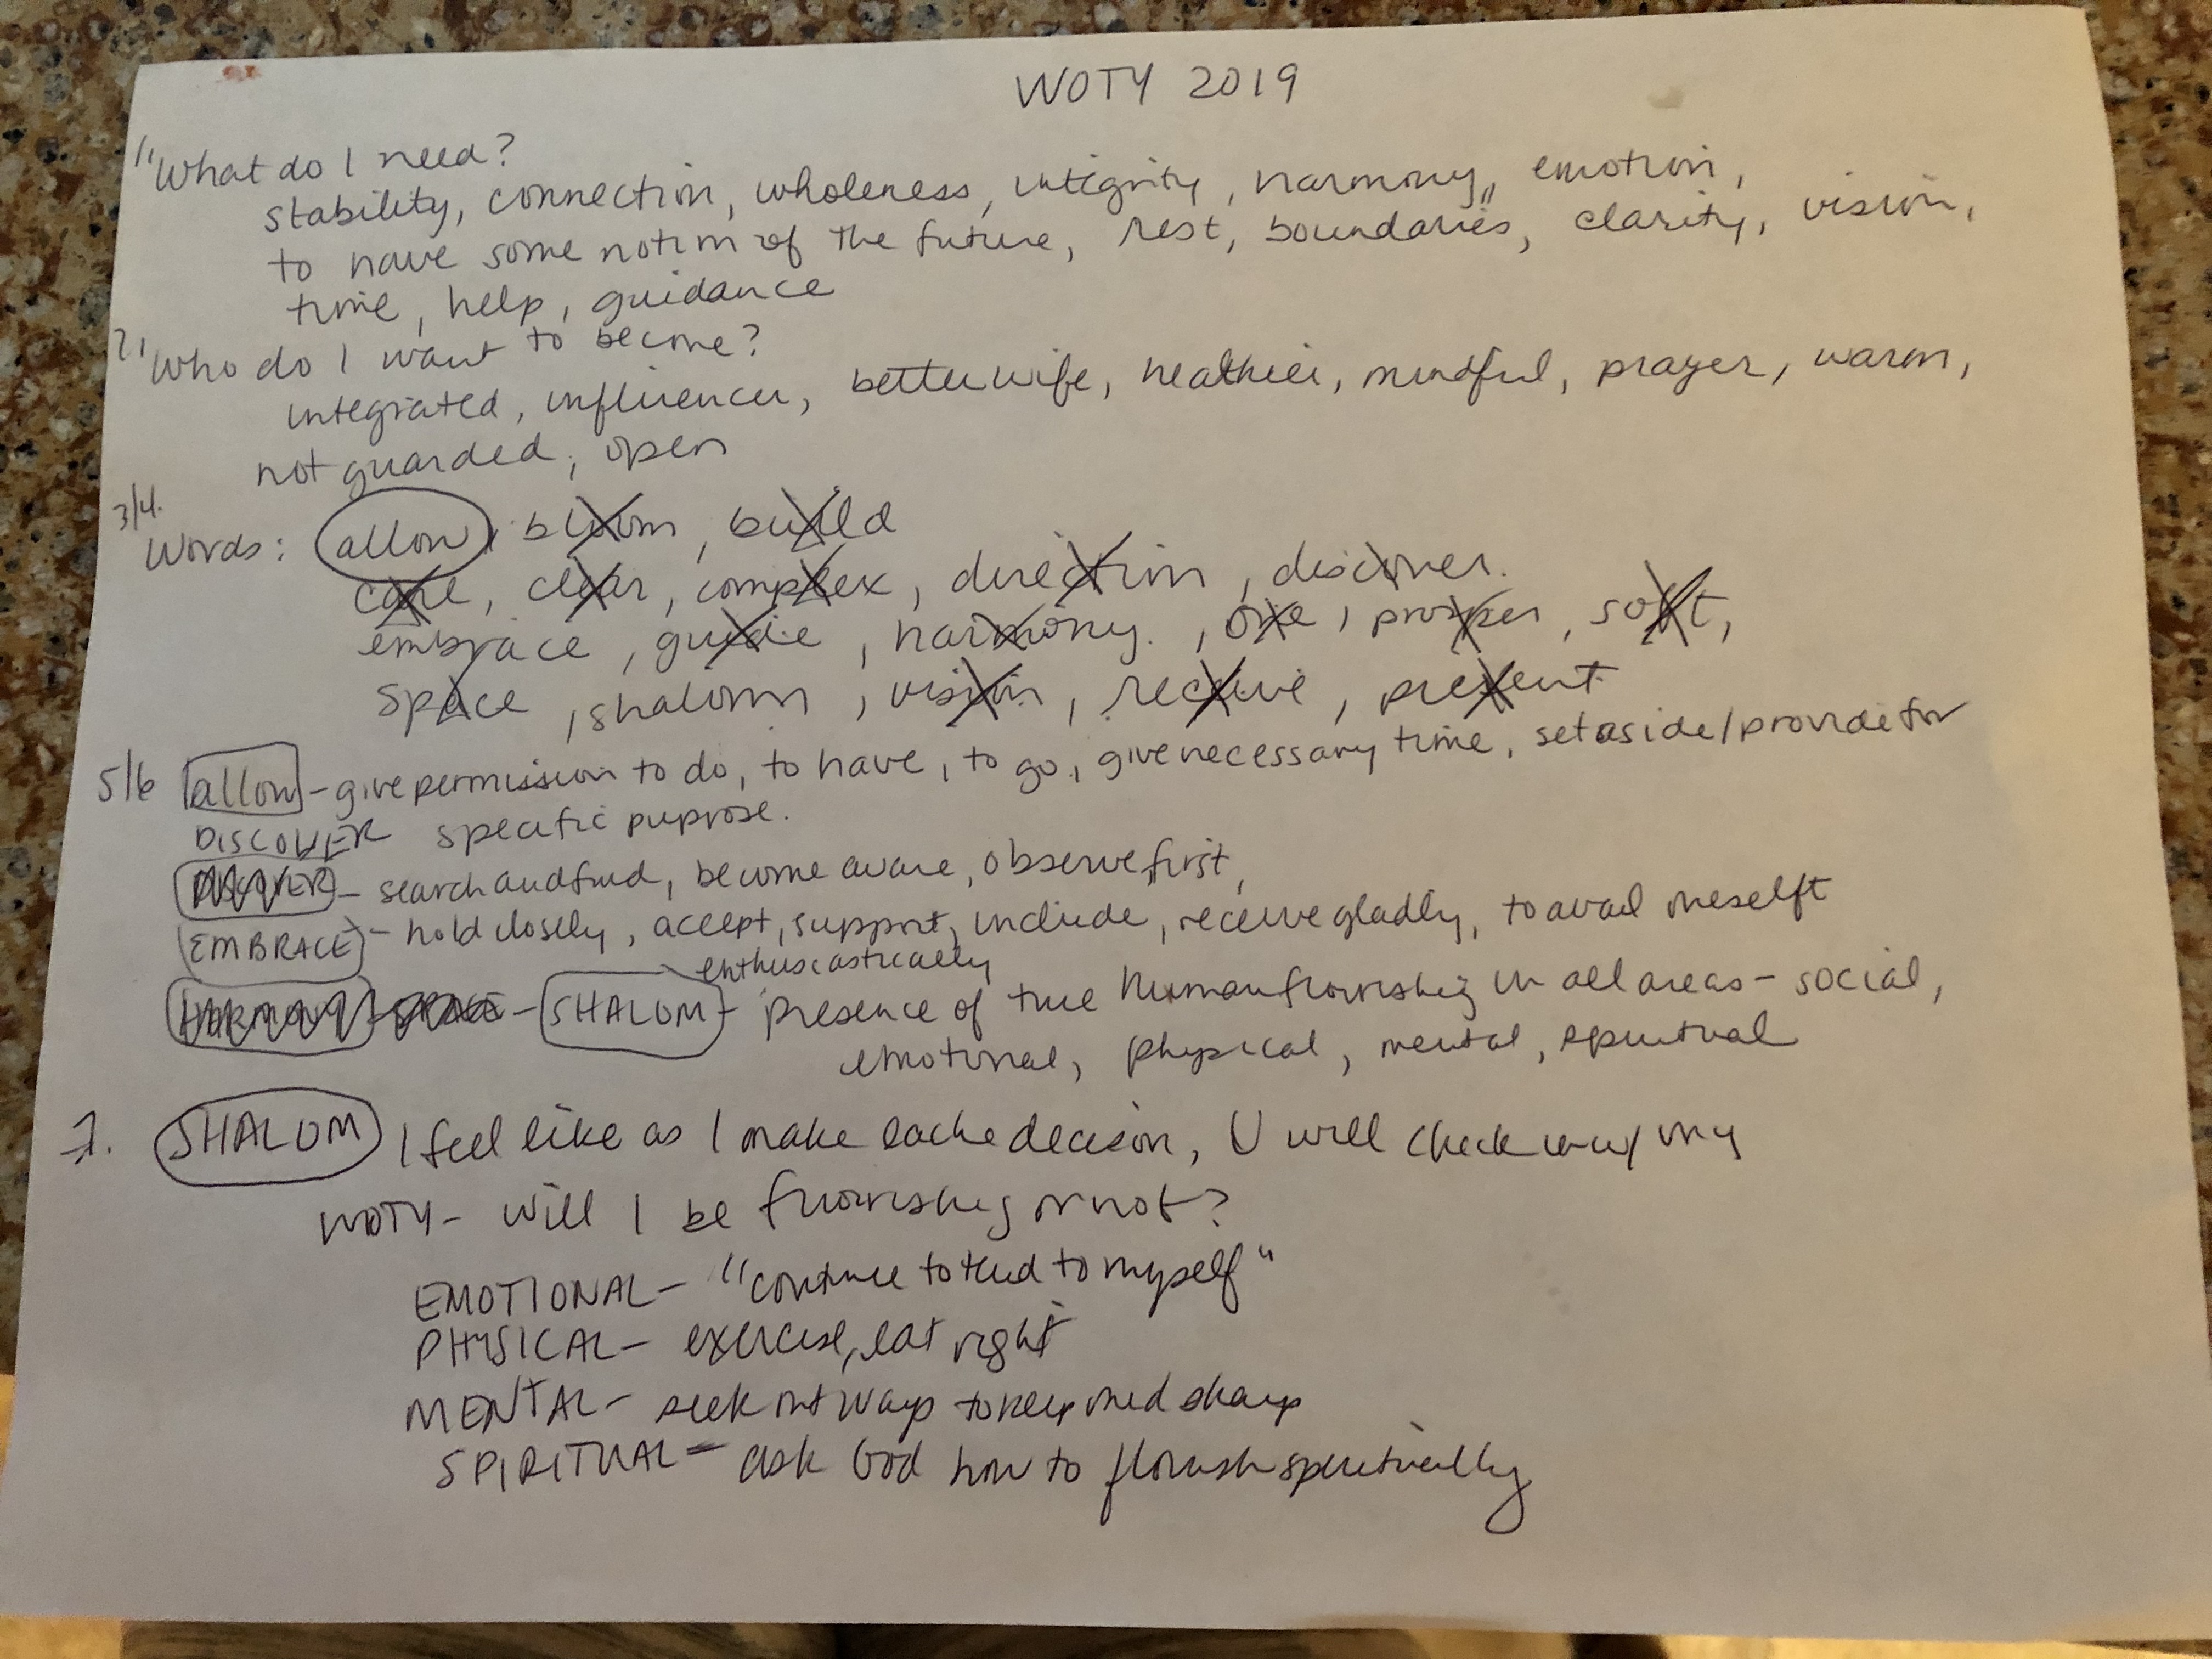 WOTY 2019
1. What do I need?
stability, connection, wholeness, integrity, harmony, emotion,
to have some notion of the future, rest, boundaries, clarity, vision,
time, help, guidance
2. Who do I want to become?
integrated, influencer, better wife, healthier, mindful, prayer, warm,
not guarded, open
3/4.
Words: allow, bloom, build
care, clear, complex, direction, discover.
embrace, guide, harmony, one, prosper, soft,
space, shalom, vision, receive, present
5/6 allow - give permission to do, to have, to go, give necessary time, set aside/provide for
DISCOVER specific puprose.
- search and find, become aware, observe first,
EMBRACE - hold closely, accept, support, include, receive gladly, to avail oneself
enthusiastically
HARMONY - SHALOM - presence of true human flourishing in all areas - social,
emotional, physical, mental, spiritual
7. SHALOM I feel like as I make each decision, I will check w/ my
WOTY - will I be flourishing or not?
EMOTIONAL - "continue to tend to myself"
PHYSICAL - exercise, eat right
MENTAL - seek out ways to keep mind sharp
SPIRITUAL - ask God how to flourish spiritually